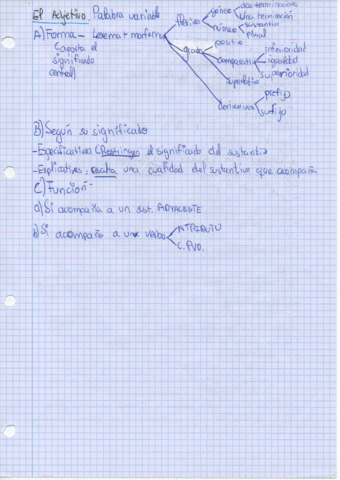 El Adjetivo. Palabra variable
A) Forma - Lexema + morfema
(aporta el
significado
central)
flexivo
género
dos terminaciones
Una terminación
número
sustantivo
plural
grado
positivo
comparativo
inferioridad
igualdad
superioridad
superlativo
derivativos
prefijo
sufijo
B) Según su significado
- Especificativa: Restringen el significado del sustantivo
- Explicativas: resalta una cualidad del sustantivo que acompaña
C) Función-
a) Si acompaña a un sust. ADYACENTE
b) Si acompaña a un verbo
ATRIBUTO
C. PVO.